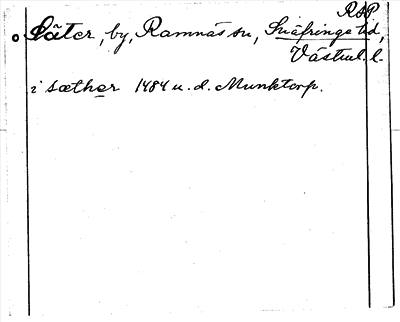 RSP
Säter, by, Ramnäs sn, Snäfringe tid,
Västml. l.
i sæther 1484 u. d. Munktorp.